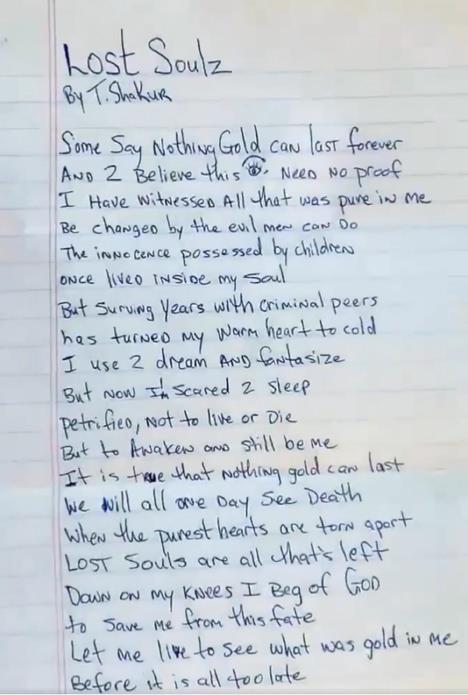 Lost Soulz
By T. Shakur
Some Say Nothing Gold can last forever
AND 2 Believe this 👁 Need No proof
I Have witnessed All that was pure in me
Be changed by the evil men can Do
The innocence possessed by children
once lived inside my soul
But surving years with criminal peers
has turned my warm heart to cold
I use 2 dream AND fantasize
But now I'm scared 2 sleep
petrified, not to live or Die
But to Awaken and still be me
It is true that nothing gold can last
we will all one Day See Death
When the purest hearts are torn apart
LOST Souls are all that's left
Down on my knees I Beg of God
to save me from this fate
Let me live to see what was gold in me
Before it is all too late